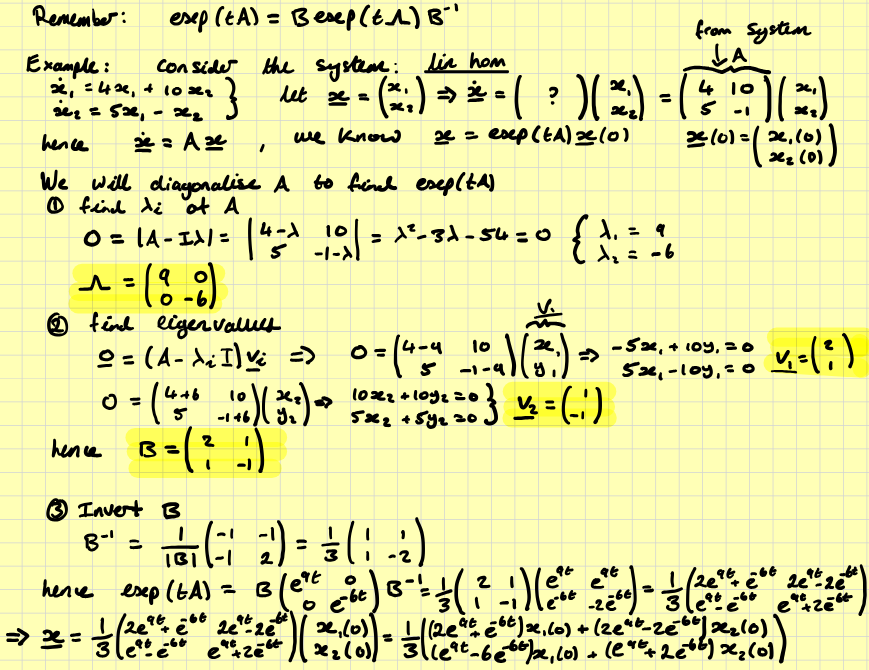 Remember: exp(tA) = B exp(tΛ) B⁻¹
from system
Example: consider the system: lin hom ↓A
ẋ₁ = 4x₁ + 10x₂
ẋ₂ = 5x₁ - x₂ } let x = (x₁ x₂) ⇒ ẋ = ( ? )(x₁ x₂) = (4 10 5 -1)(x₁ x₂)
hence ẋ = Ax , we know x = exp(tA)x(0) x(0) = (x₁(0) x₂(0))
We will diagonalise A to find exp(tA)
① find λi of A
0 = |A - Iλ| = |4-λ 10 5 -1-λ| = λ² - 3λ - 54 = 0 { λ₁ = 9 λ₂ = -6
Λ = (9 0 0 -6)
② find eigenvalues V₁
0 = (A - λiI)vi ⇒ 0 = (4-9 10 5 -1-9)(x₁ y₁) ⇒ -5x₁ + 10y₁ = 0 5x₁ - 10y₁ = 0 V₁ = (2 1)
0 = (4+6 10 5 -1+6)(x₂ y₂) ⇒ 10x₂ + 10y₂ = 0 5x₂ + 5y₂ = 0 } V₂ = (1 -1)
hence B = (2 1 1 -1)
③ Invert B
B⁻¹ = 1/|B| (-1 -1 -1 2) = 1/3 (1 1 1 -2)
hence exp(tA) = B(e^9t 0 0 e^-6t)B⁻¹ = 1/3 (2 1 1 -1)(e^9t e^9t e^-6t -2e^-6t) = 1/3 (2e^9t + e^-6t 2e^9t - 2e^-6t e^9t - e^-6t e^9t + 2e^-6t)
⇒ x = 1/3 (2e^9t + e^-6t 2e^9t - 2e^-6t e^9t - e^-6t e^9t + 2e^-6t)(x₁(0) x₂(0)) = 1/3 ((2e^9t + e^-6t)x₁(0) + (2e^9t - 2e^-6t)x₂(0) (e^9t - 6e^-6t)x₁(0) + (e^9t + 2e^-6t)x₂(0))